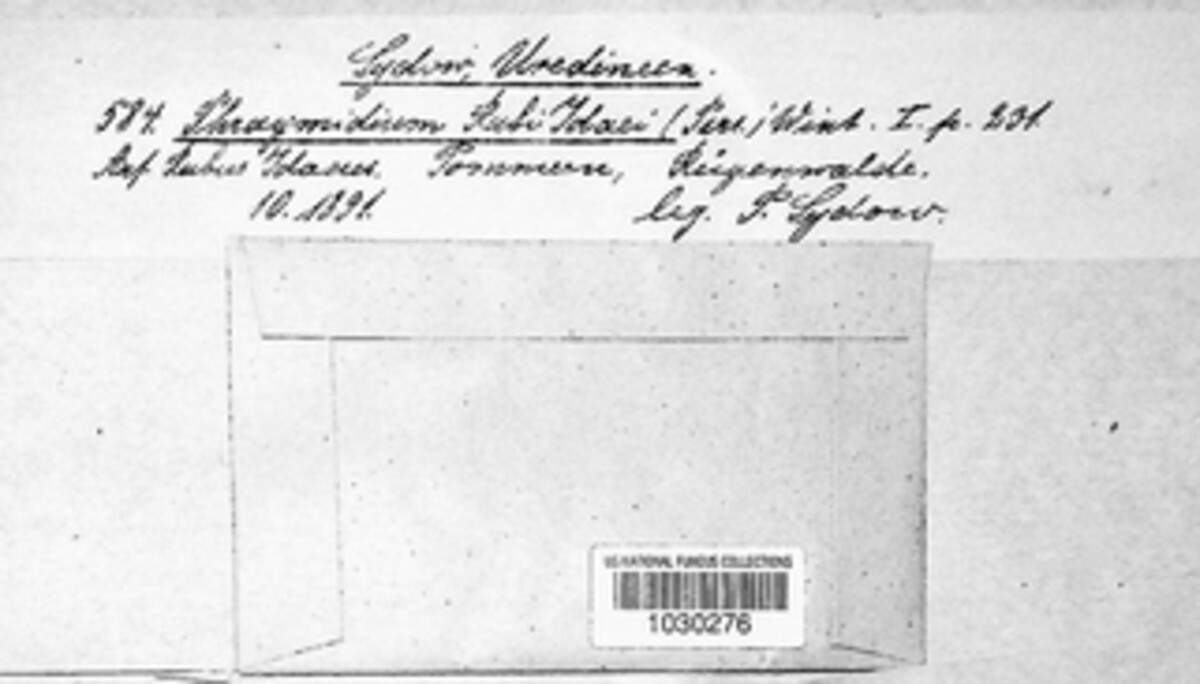 Sydow, Uredineen.
584. Phragmidium Rubi Idaei (Pers.) Wint. I. p. 231.
Auf Rubus Idaeus. Pommern, Rügenwalde.
10. 1891. leg. P. Sydow.
US NATIONAL FUNGUS COLLECTIONS
1030276